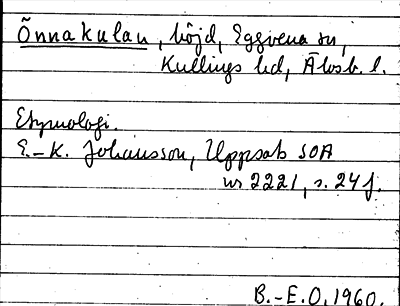 Õnnakulan, höjd, Eggvena sn,
Kullings hd, Älvsb. l.
Etymologi.
E.-K. Johansson, Uppsats SOA
nr 2221, s. 24 f.
B.-E.O, 1960.